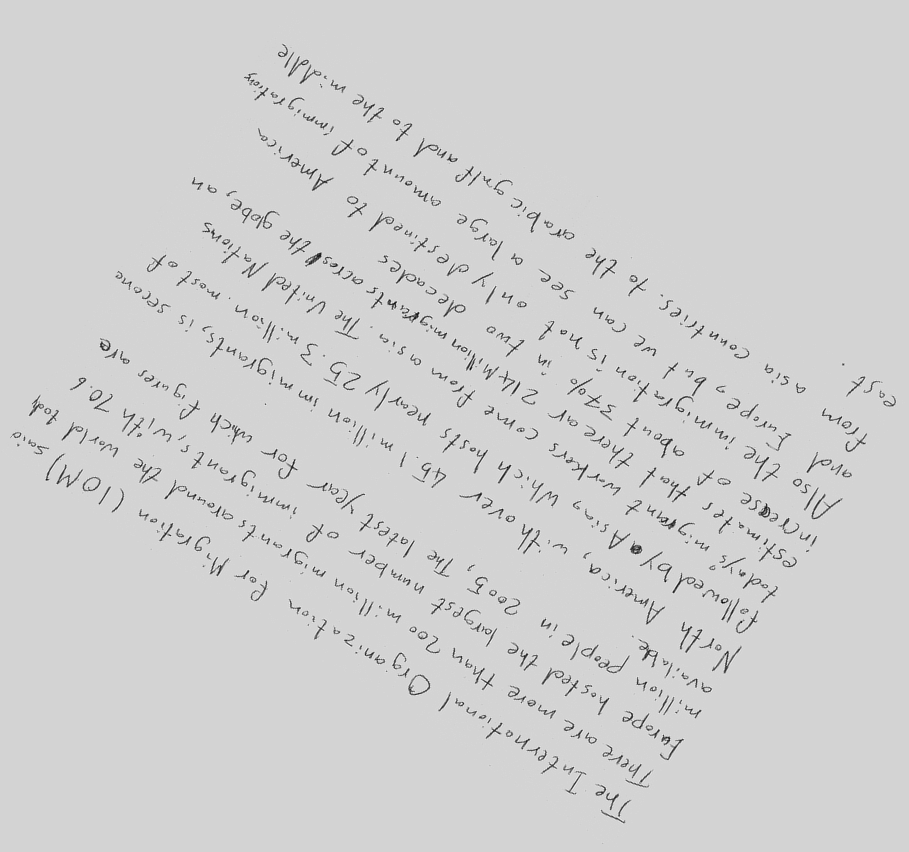 The International Organization for Migration (IOM) said
There are more than 200 million migrants around the world tody
Europe hosted the largest number of immigrants, with 70.6
million people in 2005, The latest year for which figures are
available.
North America, with over 45.1 million immigrants, is second
followed by Asia, which hosts nearly 25.3 million. most of
todays' migrant workers come from asia. The United Nations
estimates that there ar 214 Million migrants across the globe, an
increase of about 37% in two decades
Also the immigration is not only destined to America
and Europe, but we can see a large amount of immigration
from asia countries. to the arabic gulf and to the middle
east.